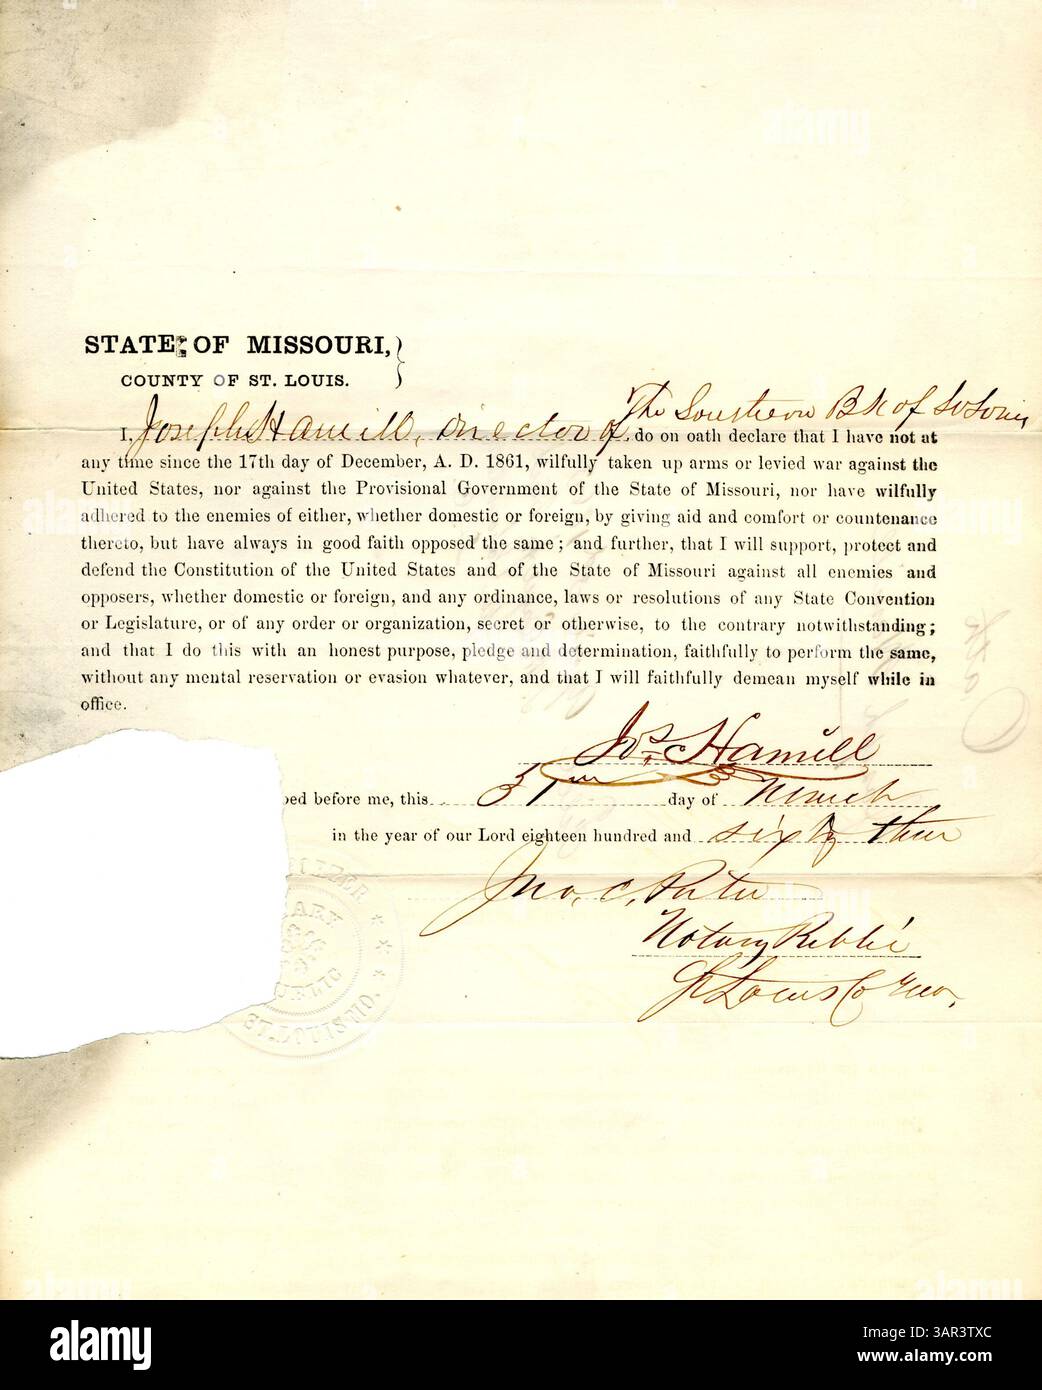 STATE OF MISSOURI,
COUNTY OF ST. LOUIS.
The Southern Bk of St Louis,
I, Joseph Hamill, Director of, do on oath declare that I have not at
any time since the 17th day of December, A. D. 1861, wilfully taken up arms or levied war against the
United States, nor against the Provisional Government of the State of Missouri, nor have wilfully
adhered to the enemies of either, whether domestic or foreign, by giving aid and comfort or countenance
thereto, but have always in good faith opposed the same; and further, that I will support, protect and
defend the Constitution of the United States and of the State of Missouri against all enemies and
opposers, whether domestic or foreign, and any ordinance, laws or resolutions of any State Convention
or Legislature, or of any order or organization, secret or otherwise, to the contrary notwithstanding;
and that I do this with an honest purpose, pledge and determination, faithfully to perform the same,
without any mental reservation or evasion whatever, and that I will faithfully demean myself while in
office.
Jos. Hamill
bed before me, this 31 day of March
in the year of our Lord eighteen hundred and sixty three
Jno. C.
Notary Public
St Louis Co Mo.
PUBLIC
ST. LOUIS MO.
alamy
Image ID: 2AR3TXC
www.alamy.com